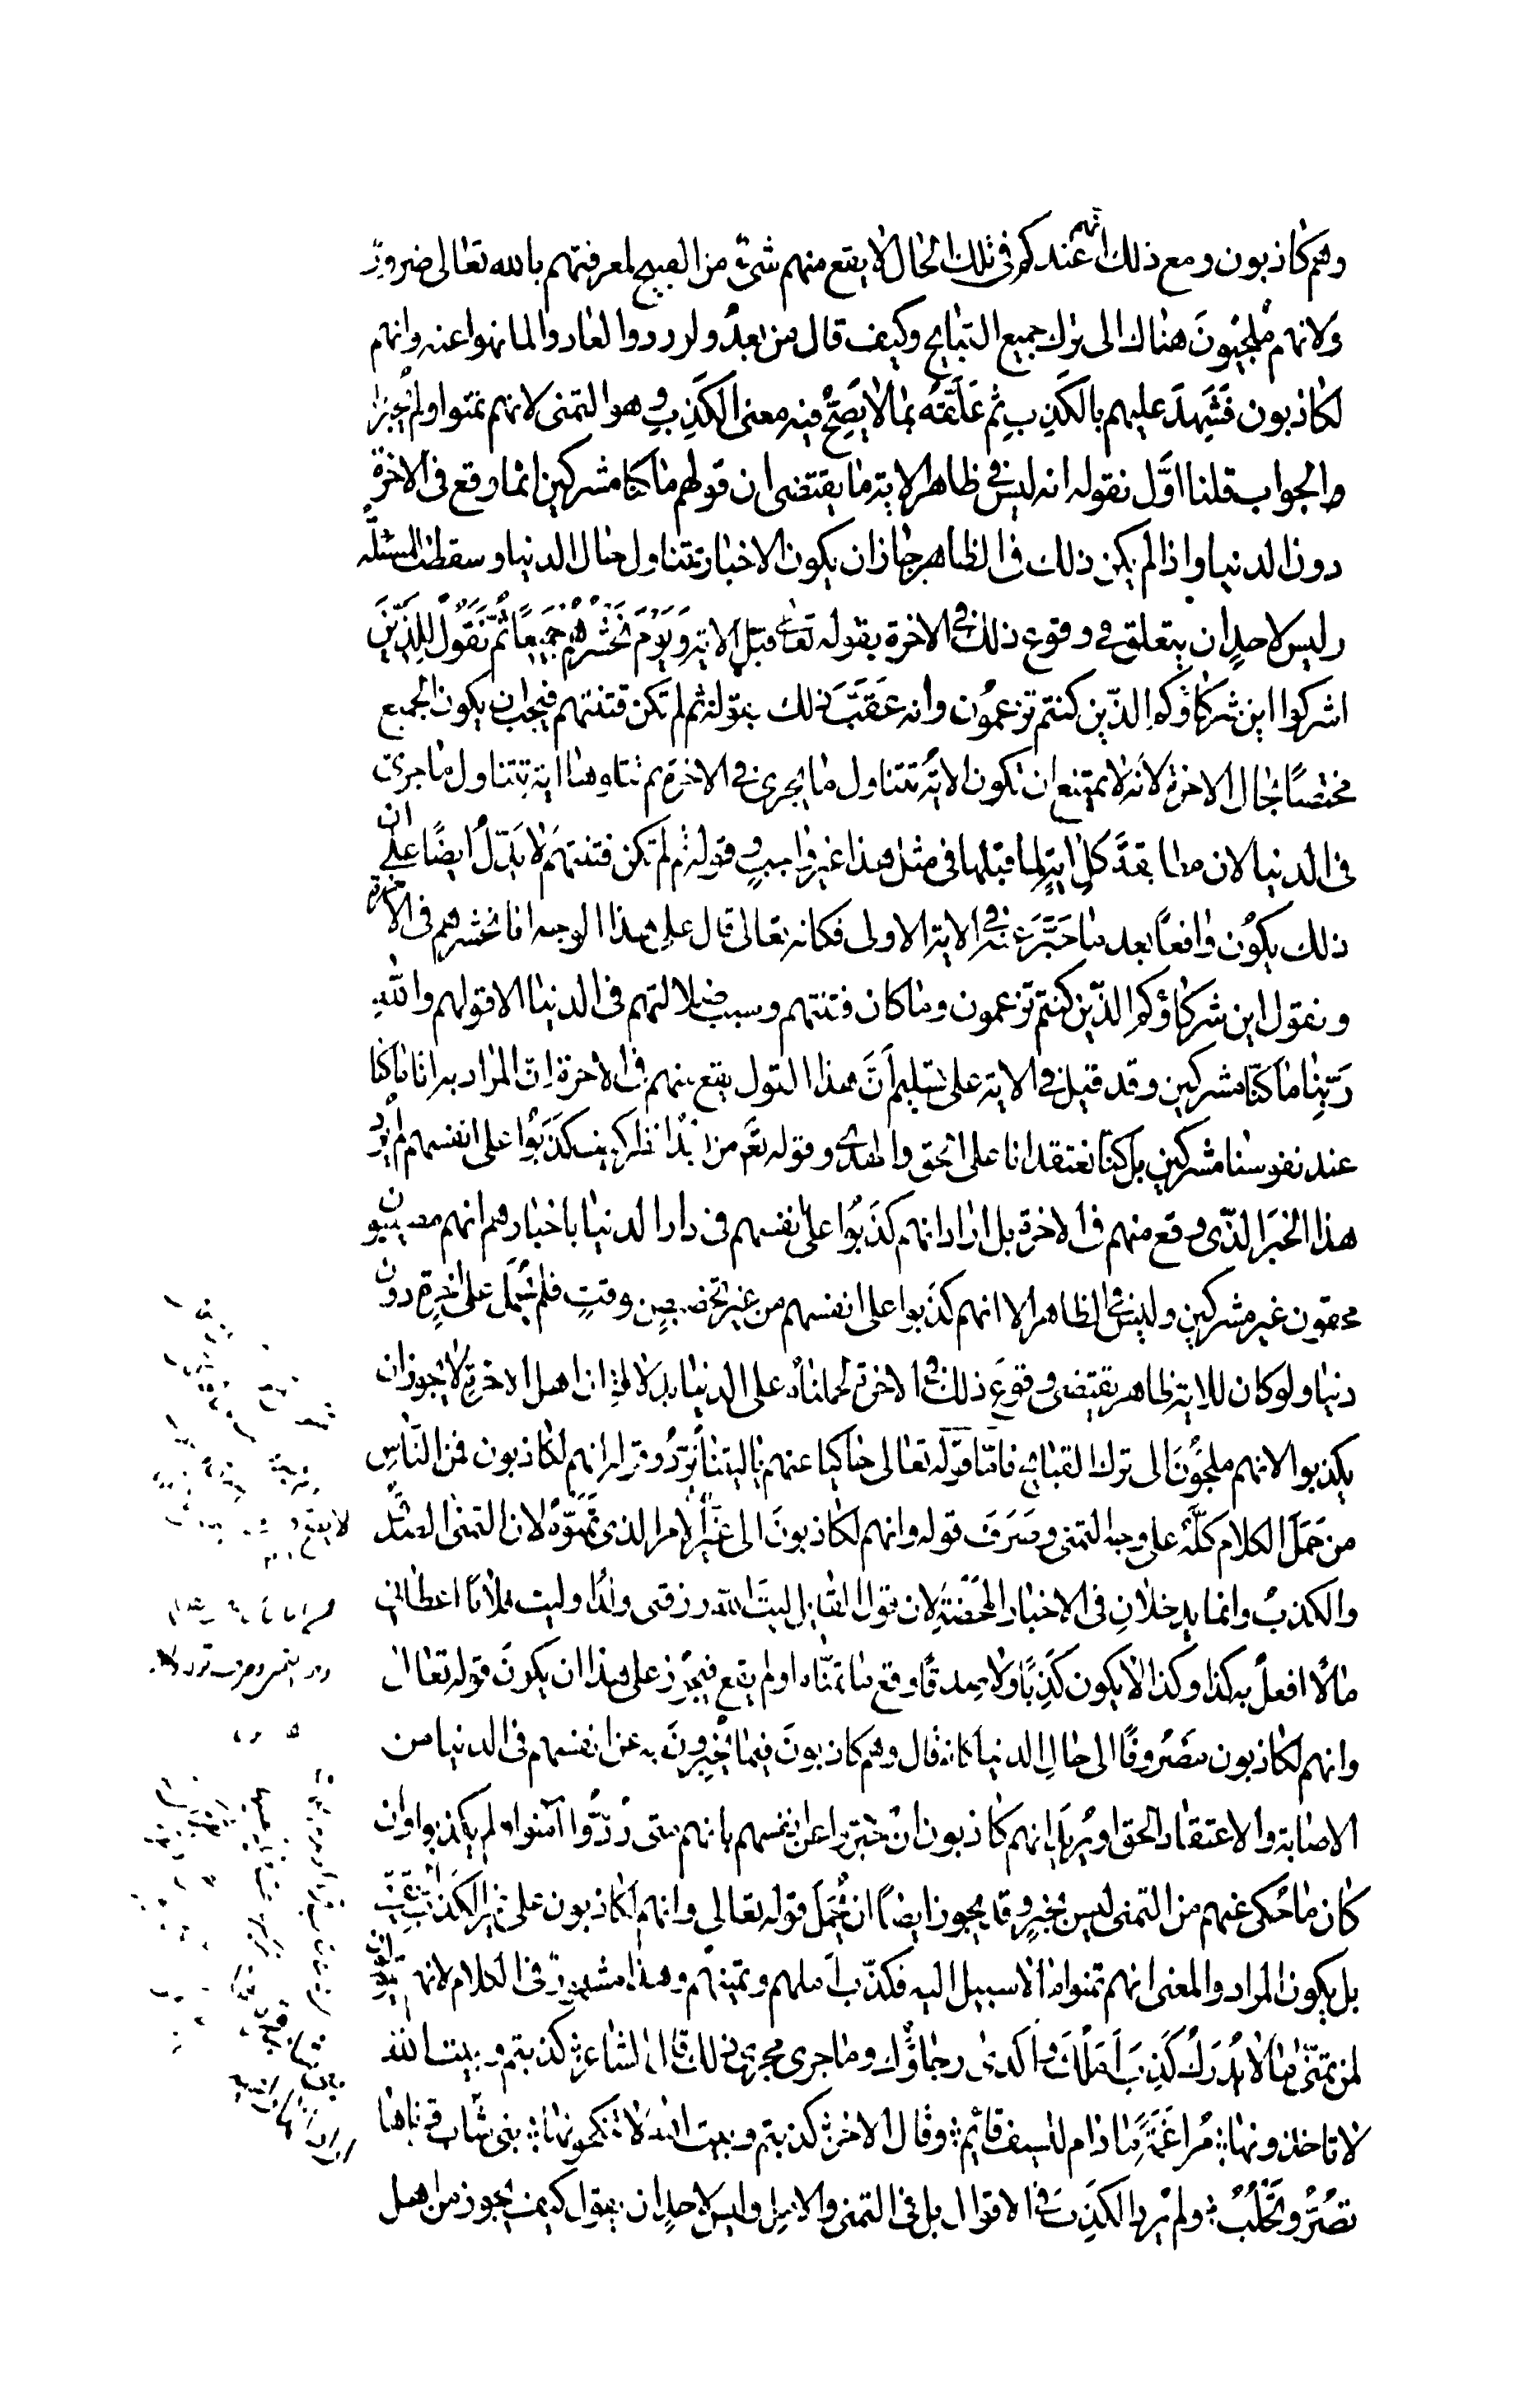 وهم كاذبون ومع ذلك انهم عندكم فى تلك الحال لا يقع منهم شئ من القبيح لمعرفتهم بالله تعالى ضرورة
ولانهم ملجئون هناك الى ترك جميع القبايح وكيف قال من بعد ولو ردوا لعادوا لما نهوا عنه وانهم
لكاذبون فشهد عليهم بالكذب ثم علقه بما لا يصح فيه معنى الكذب وهو التمنى لانهم تمنوا ولم يخبروا
الجواب قلنا اول نقوله انه ليس فى ظاهر الاية ما يقتضى ان قولهم ما كنا مشركين انما وقع فى الاخرة
دون الدنيا واذا لم يكن ذلك فى الظاهر جاز ان يكون الاخبار تتناول حال الدنيا وسقطت المسئلة
وليس لاحد ان يتعلق فى وقوع ذلك فى الاخرة بقوله تعالى قبل الاية وَيَوْمَ نَحْشُرُهُمْ جَمِيعًا ثُمَّ نَقُولُ لِلَّذِينَ
اشركوا اين شركاؤكم الذين كنتم تزعمون وانه عقب ذلك بقوله ثم لم تكن فتنتهم فيجب ان يكون الجميع
مختصا بحال الاخرة لانه لا يمتنع ان تكون الاية تتناول ما يجرى فى الاخرة ثم تتلوها اية تتناول ما جرى
فى الدنيا لان مطابقة كل اية لما قبلها فى مثل هذا غير واجب وقوله ثم لم تكن فتنتهم لا يدل ايضا على ان
ذلك يكون واقعا بعد ما خبر عنه فى الاية الاولى فكانه تعالى قال على هذا الوجه انا نحشرهم فى الاخرة
ونقول اين شركاؤكم الذين كنتم تزعمون وما كان فتنتهم وسبب ضلالتهم فى الدنيا الا قولهم والله
ربنا ما كنا مشركين وقد قيل فى الاية على تسليم ان هذا القول يقع منهم فى الاخرة ان المراد به انا ما كنا
عند نفوسنا مشركين بل كنا نعتقد انا على الحق والهدى وقوله تعالى من بعد انظر كيف كذبوا على انفسهم لم يرد
هذا الخبر الذى وقع منهم فى الاخرة بل اراد انهم كذبوا على انفسهم فى دار الدنيا باخبارهم انهم مصيبون
محقون غير مشركين وليس فى الظاهر الا انهم كذبوا على انفسهم من غير تخصيص وقت فلم يحمل على اخرة دون
دنيا ولو كان للاية ظاهر يقتضى وقوع ذلك فى الاخرة لحملناه على الدنيا بدلالة ان اهل الاخرة لا يجوز ان
يكذبوا لانهم ملجئون الى ترك القبائح فاما قوله تعالى حاكيا عنهم يا ليتنا نرد وقوله انهم لكاذبون فمن الناس
من حمل الكلام كله على وجه التمنى وصرف قوله وانهم لكاذبون الى غير الامر الذى تمنوه لان التمنى الصدق
والكذب وانما يدخلان فى الاخبار المحضة لان قول القايل ليت الله رزقنى ولدا وليت فلانا اعطانى
مالا افعل به كذا وكذا لا يكون كذبا ولا صدقا وقع ما تمناه او لم يقع فيجوز على هذا ان يكون قوله تعالى
وانهم لكاذبون مصروفا الى حال الدنيا كانه قال وهم كاذبون فيما يخبرون به عن انفسهم فى الدنيا من
الاصابة والاعتقاد الحق او يريد انهم كاذبون ان خبروا عن انفسهم بانهم متى ردوا آمنوا ولم يكذبوا وان
كان ما حكى عنهم من التمنى ليس بخبر وقد يجوز ايضا ان يحمل قوله تعالى وانهم لكاذبون على غير الكذب
بل يكون المراد والمعنى انهم تمنوا ما لا سبيل اليه فكذب املهم وتمنيهم وهذا مشهور فى الكلام لانهم يقولون
لمن تمنى ما لا يدرك كذب املك واكدى رجاؤك وما جرى مجرى ذلك قال الشاعر كذبتم وبيت الله
لا تاخذونها مراغمة ما دام للسيف قائم وقال الاخر كذبتم وبيت الله لا تنكحونها بنى شاب قرناها
تصر وتحلب ولم يرد الكذب فى الاقوال بل فى التمنى والامل وليس لاحد ان يقول كيف يجوز من اهل